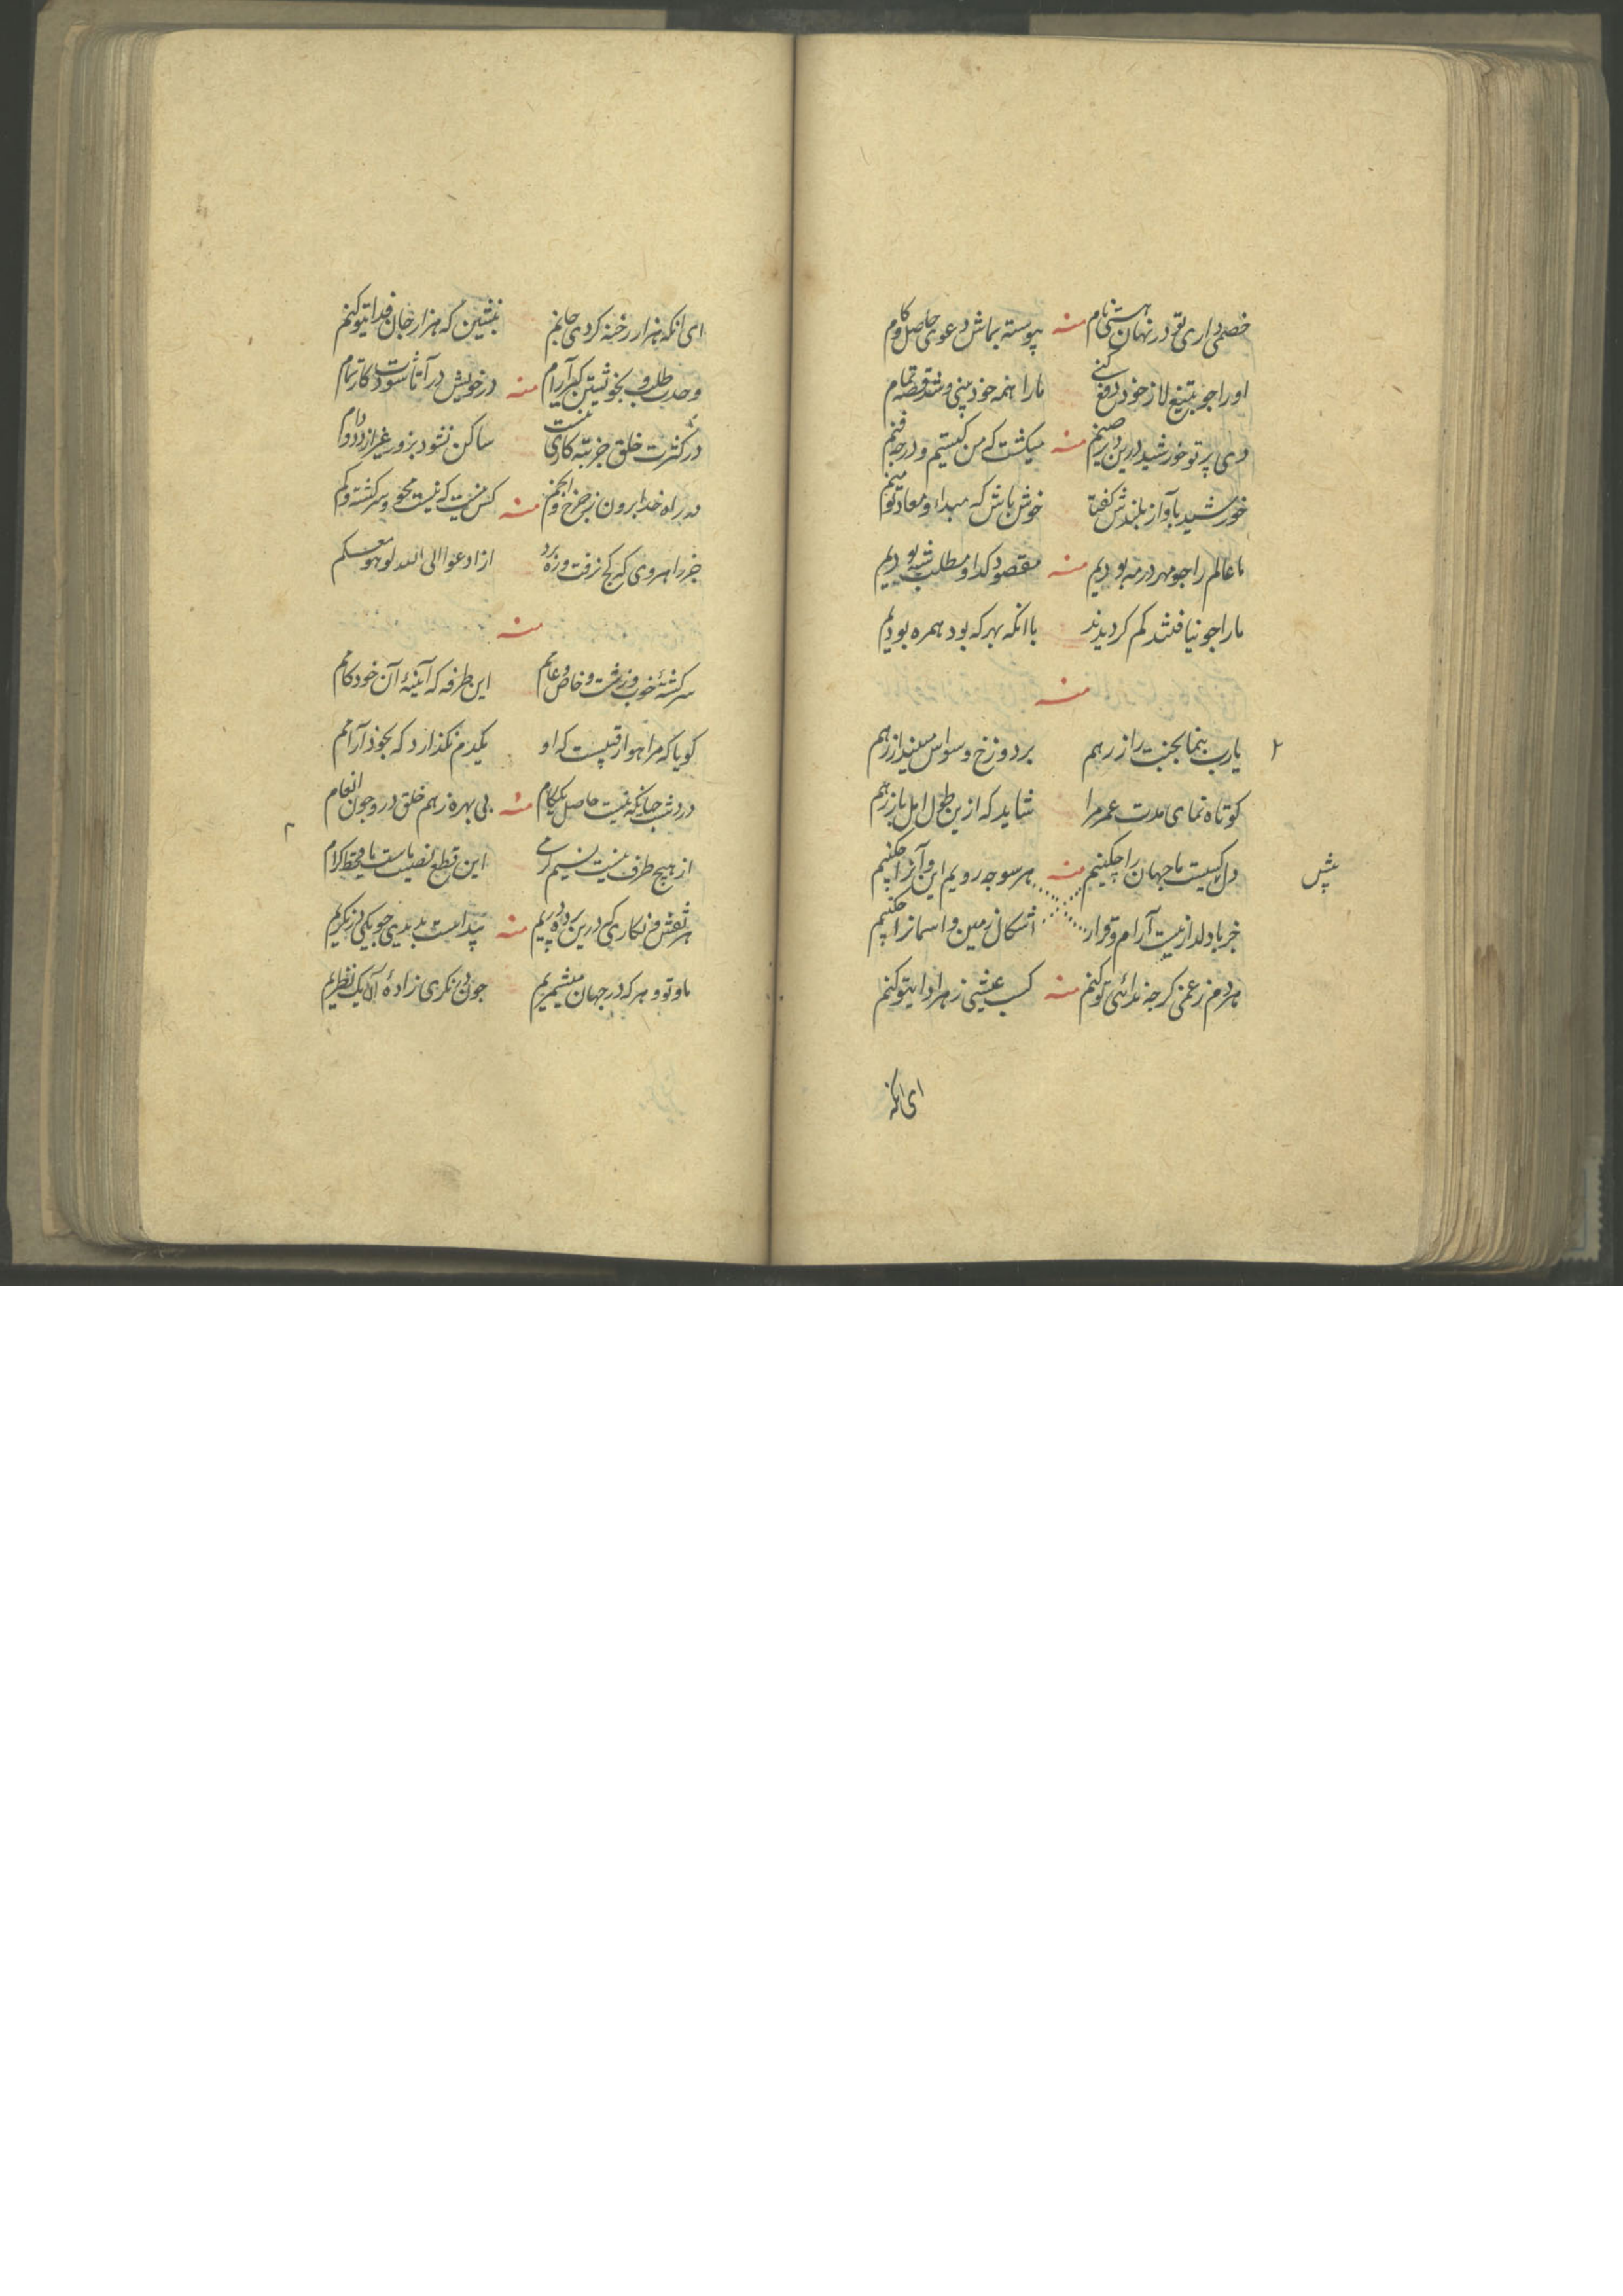 خصمی داری تو در نهان هستی نام منه پیوسته بماش دعوی حاصل و کام
او را جو بتیغ لا ز خود دفع کنی ما را همه خود بینی و شد قصه تمام
دی پرتو خورشید درین دیر صنم منه میکشت که من کیستم و در جه فنم
خورشید بآواز بلندش گفتا خوش باش که مبداء و معاد تو منم
ما عالم را جو مهر در مه بودیم منه مقصود کدا و مطلب شه بودیم
ما را جو نیافتند کم کردیدند با انکه بهر که بود همره بودیم
منه
یارب بنما بجنت راز رهم بر دوزخ وسواس مینداز رهم
کوتاه نمای مدت عمر مرا شاید که ازین طول امل باز رهم
پیش
دل با کیست ما جهان را چکنیم منه هر سو جه رویم این و آنرا چکنیم
جز با دلدار نیست آرام و قرار اشکال زمین و اسمانرا چکنیم
هر دم ز غمی کرجه ندائی تو کنم منه کسب عیشی ز هر ادایتو کنم
ای انکه
ای انکه هزار رخنه کردی جانم بنشین که هزار جان فدایتو کنم
وحدت طلب و بخویشتن کیر آرام منه در خویش در آ تا شودت کار تمام
در کثرت خلق جز بتبه کاری نیست ساکن نشود بزور غیر از دد و دام
در راه خدا برون ز چرخ و انجم منه کس نیست که نیست محو و سرکشته و کم
جز راهروی که کج نرفت و ره برد از ادعوا الی الله لو هو معکم
منه
سرکشتهٔ خوب و زشت و خاص و عامم این طرفه که آیینهٔ آن خودکامم
کویا که مرا هوا رقیبست که او یکدم نکذارد که بخود آرامم
در دشت جهانکه نیست حاصل یکام منه بی بهره ز هم خلق درو جون انعام
از هیچ طرف نیست نسیم کرمی این قطع نصیب ماست یا قحط کرام
هر نقش و نکاری که درین پرده دریم منه پیداست بد بدی جو نیکی نکریم
ما و تو و هر که در جهان میشمریم جون بنکری زادهٔ آن یک نظریم